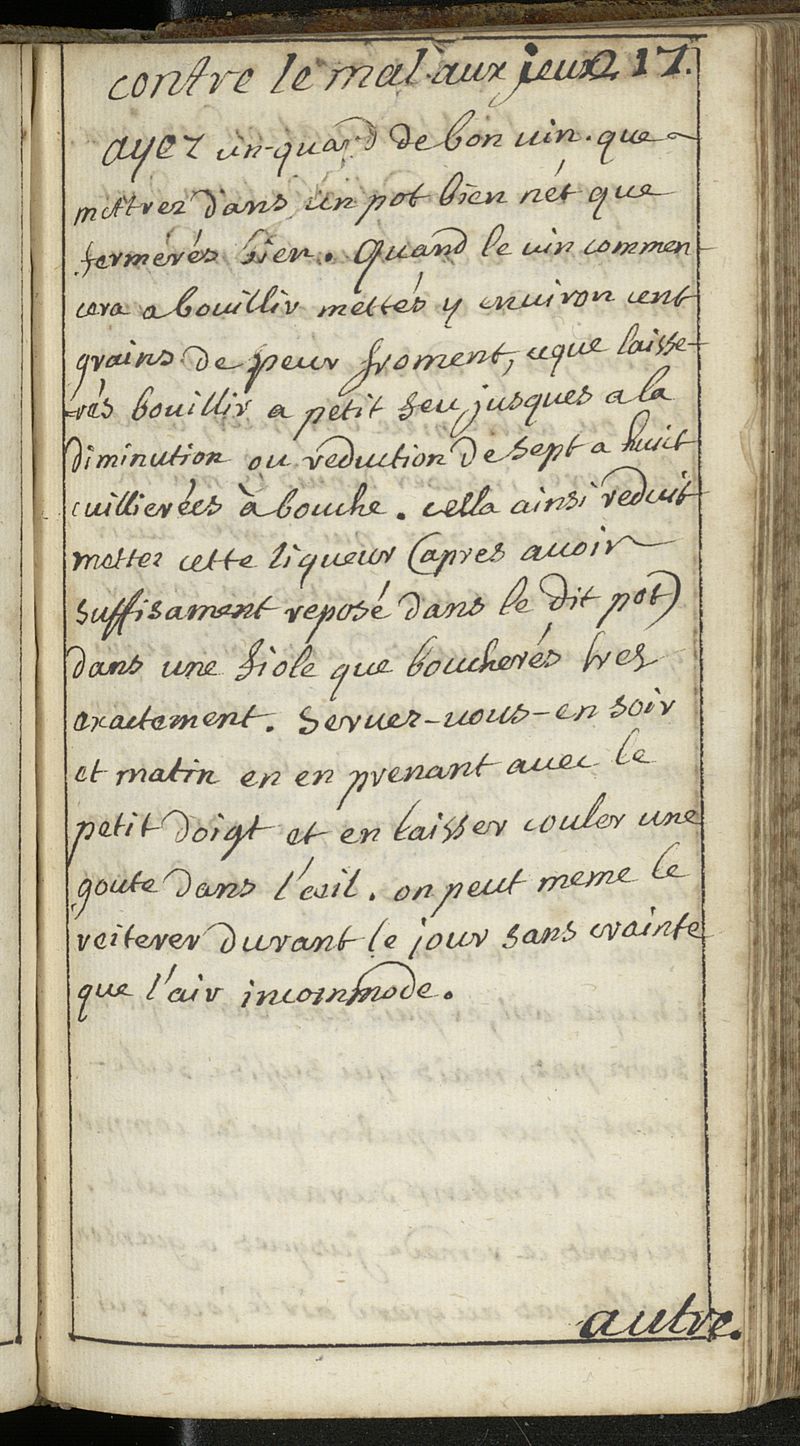 contre le mal aux jeux 217.
ayez un quard de bon vin. que
mettrez dans un pot bien nét que
fermerés bien. Quand le vin commen-
cera a bouillir mettés y environ cent
grains de peur froment, cque laisse-
rés bouillir a petit feu jusques a la
diminution ou reduction de sept a huit
cuillierées à bouche. cella ainsi reduit
mettez cette liqueur (apres avoir
suffisament reposé dans le dit pot)
dans une fiole que boucherés tres
exactement. Servez-vous-en soir
et matin en en prenant avec le
petit doigt et en laisser couler une
goute dans l'œil. on peut meme le
reiterer durant le jour sans crainte
que l'air incommode.
autre.